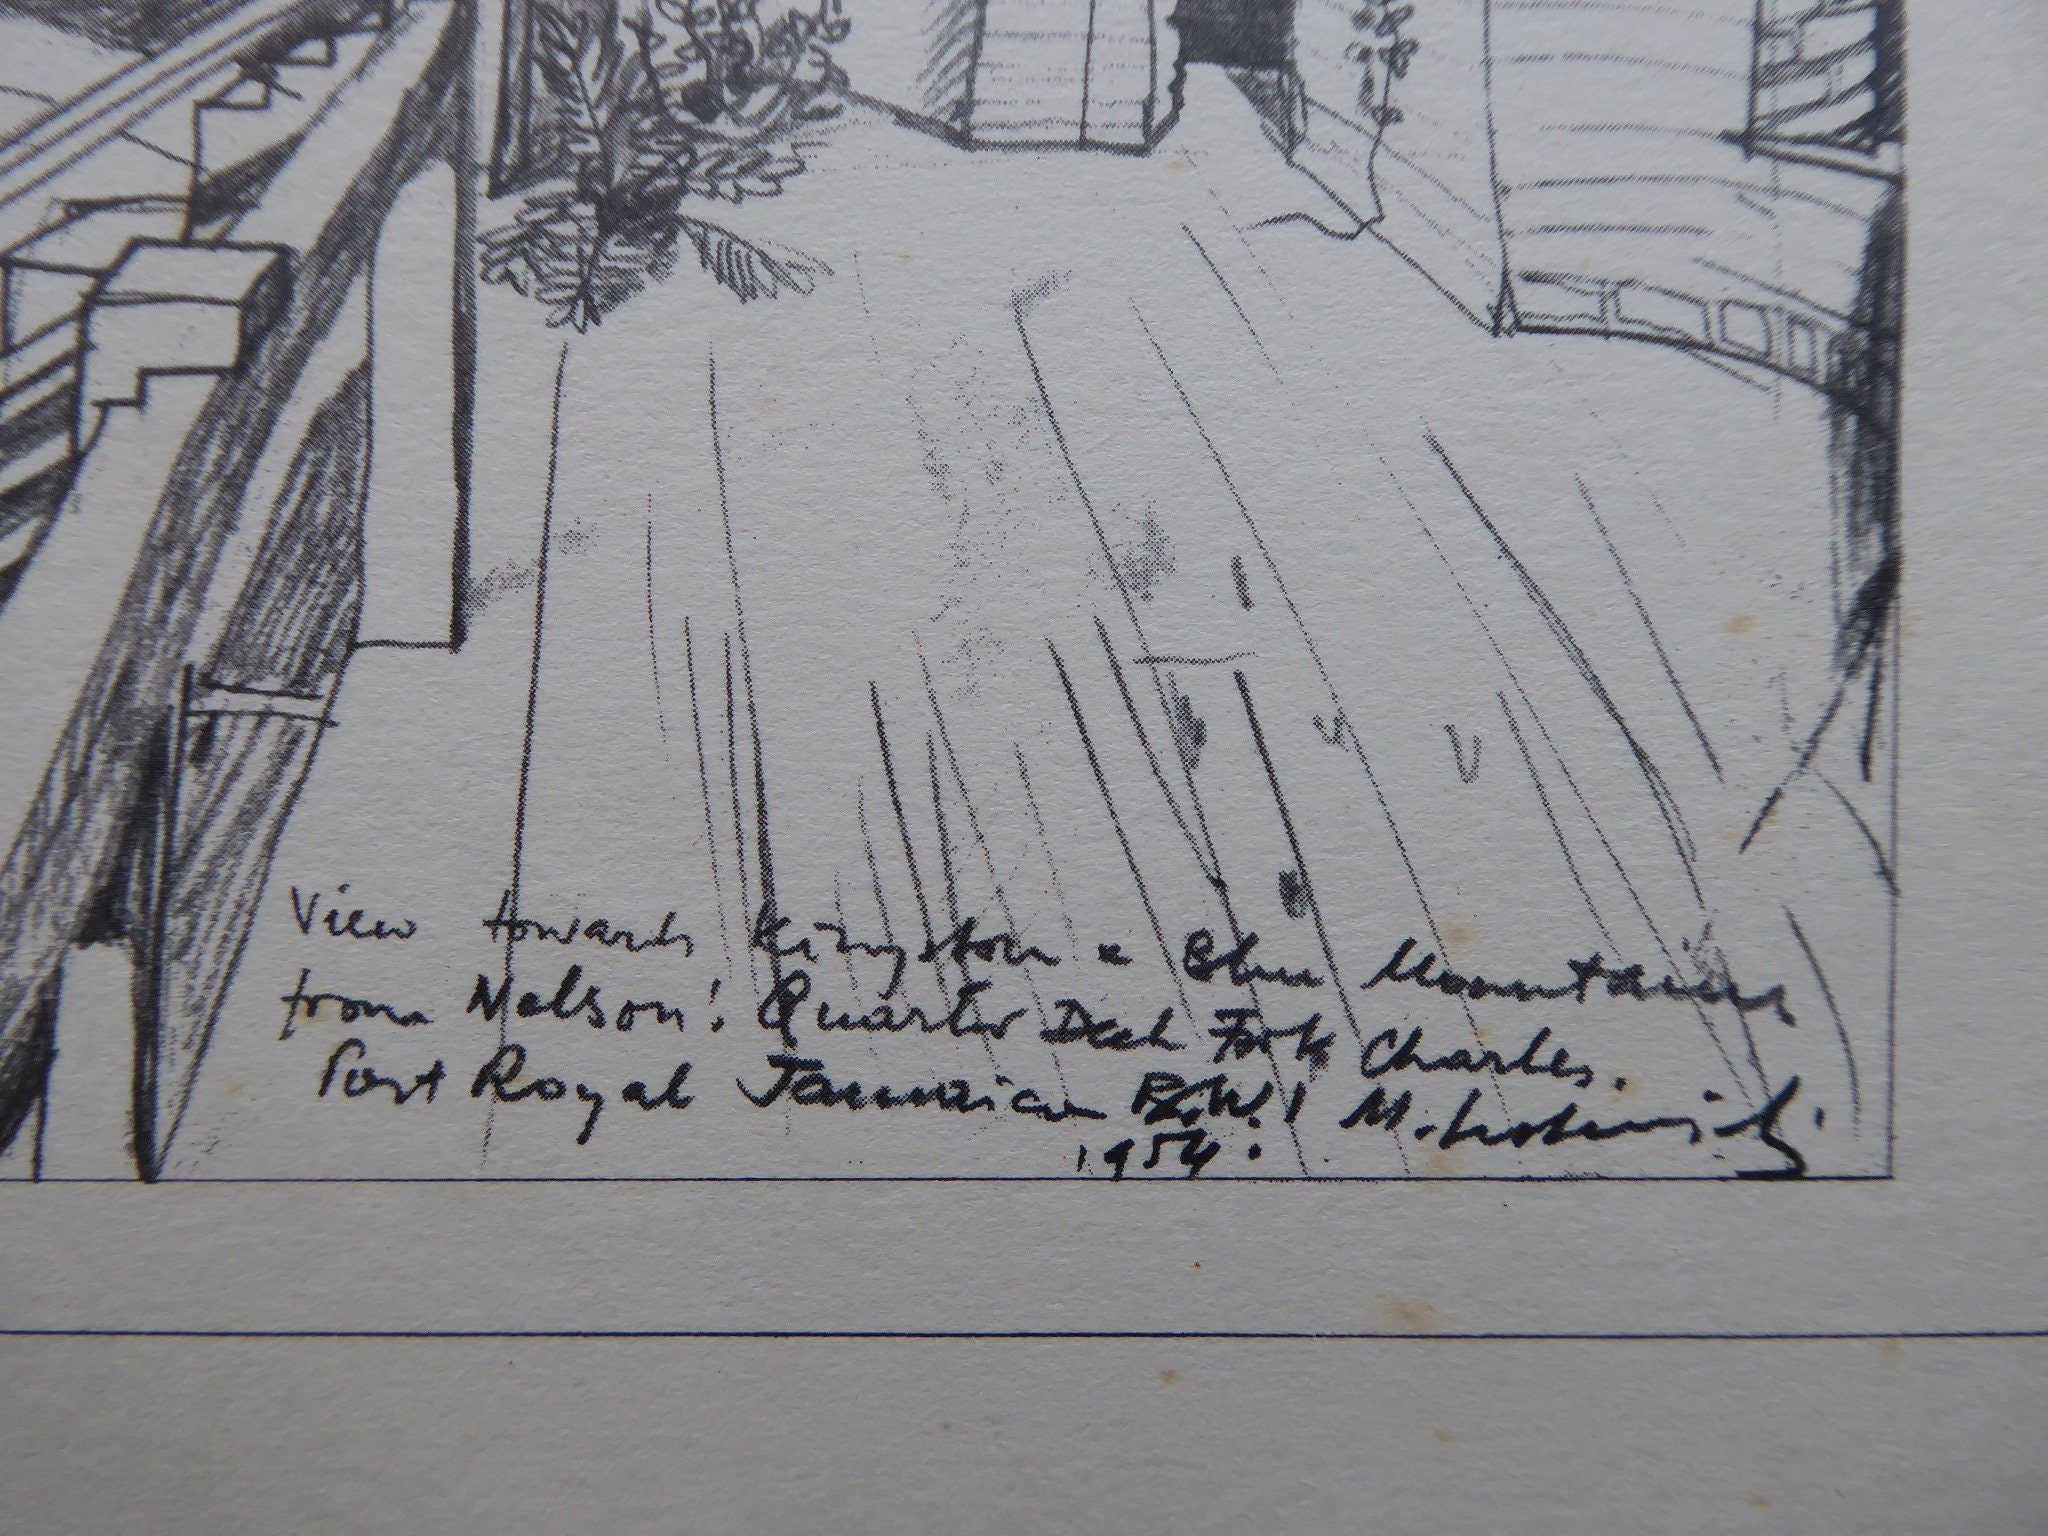 View towards Kingston & Blue Mountains
from Nelson's Quarter Deck Fort Charles.
Port Royal Jamaica B.W.I M.
1954.